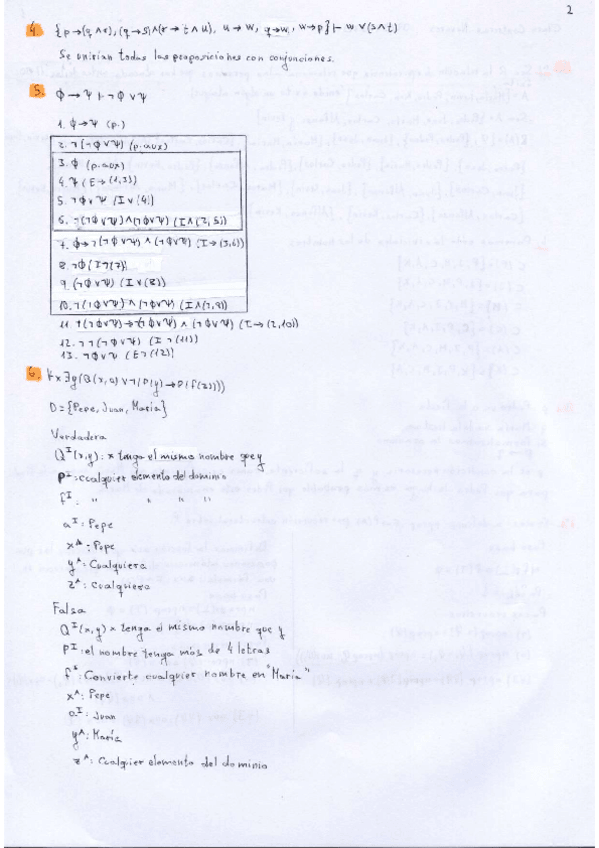 2
4. {p→(q∧r), (q→s)∧(r→t∧u), u→w, q→w, w→p} ⊢ w∨(s∧t)
Se unirían todas las proposiciones con conjunciones.
5. Φ→Ψ ⊢ ¬Φ∨Ψ
1. Φ→Ψ (p.)
2. ¬(¬Φ∨Ψ) (p.aux)
3. Φ (p.aux)
4. Ψ (E→(1,3))
5. ¬Φ∨Ψ (I∨(4))
6. ¬(¬Φ∨Ψ)∧(¬Φ∨Ψ) (I∧(2,5))
7. Φ→¬(¬Φ∨Ψ)∧(¬Φ∨Ψ) (I→(3,6))
8. ¬Φ (I¬(7))
9. (¬Φ∨Ψ) (I∨(8))
10. ¬(¬Φ∨Ψ)∧(¬Φ∨Ψ) (I∧(2,9))
11. ¬(¬Φ∨Ψ)→¬(¬Φ∨Ψ)∧(¬Φ∨Ψ) (I→(2,10))
12. ¬¬(¬Φ∨Ψ) (I¬(11))
13. ¬Φ∨Ψ (E¬(12))
6. ∀x∃y(Q(x,a)∨¬(P(y)→P(f(z))))
D={Pepe, Juan, María}
Verdadera
Q^I(x,y): x tenga el mismo nombre que y
P^I: cualquier elemento del dominio
f^I: " " " "
a^I: Pepe
x^A: Pepe
y^A: Cualquiera
z^A: Cualquiera
Falsa
Q^I(x,y) x tenga el mismo nombre que y
P^I: el nombre tenga más de 4 letras
f^I Convierte cualquier nombre en "María"
x^A: Pepe
a^I: Juan
y^A: María
z^A: Cualquier elemento del dominio